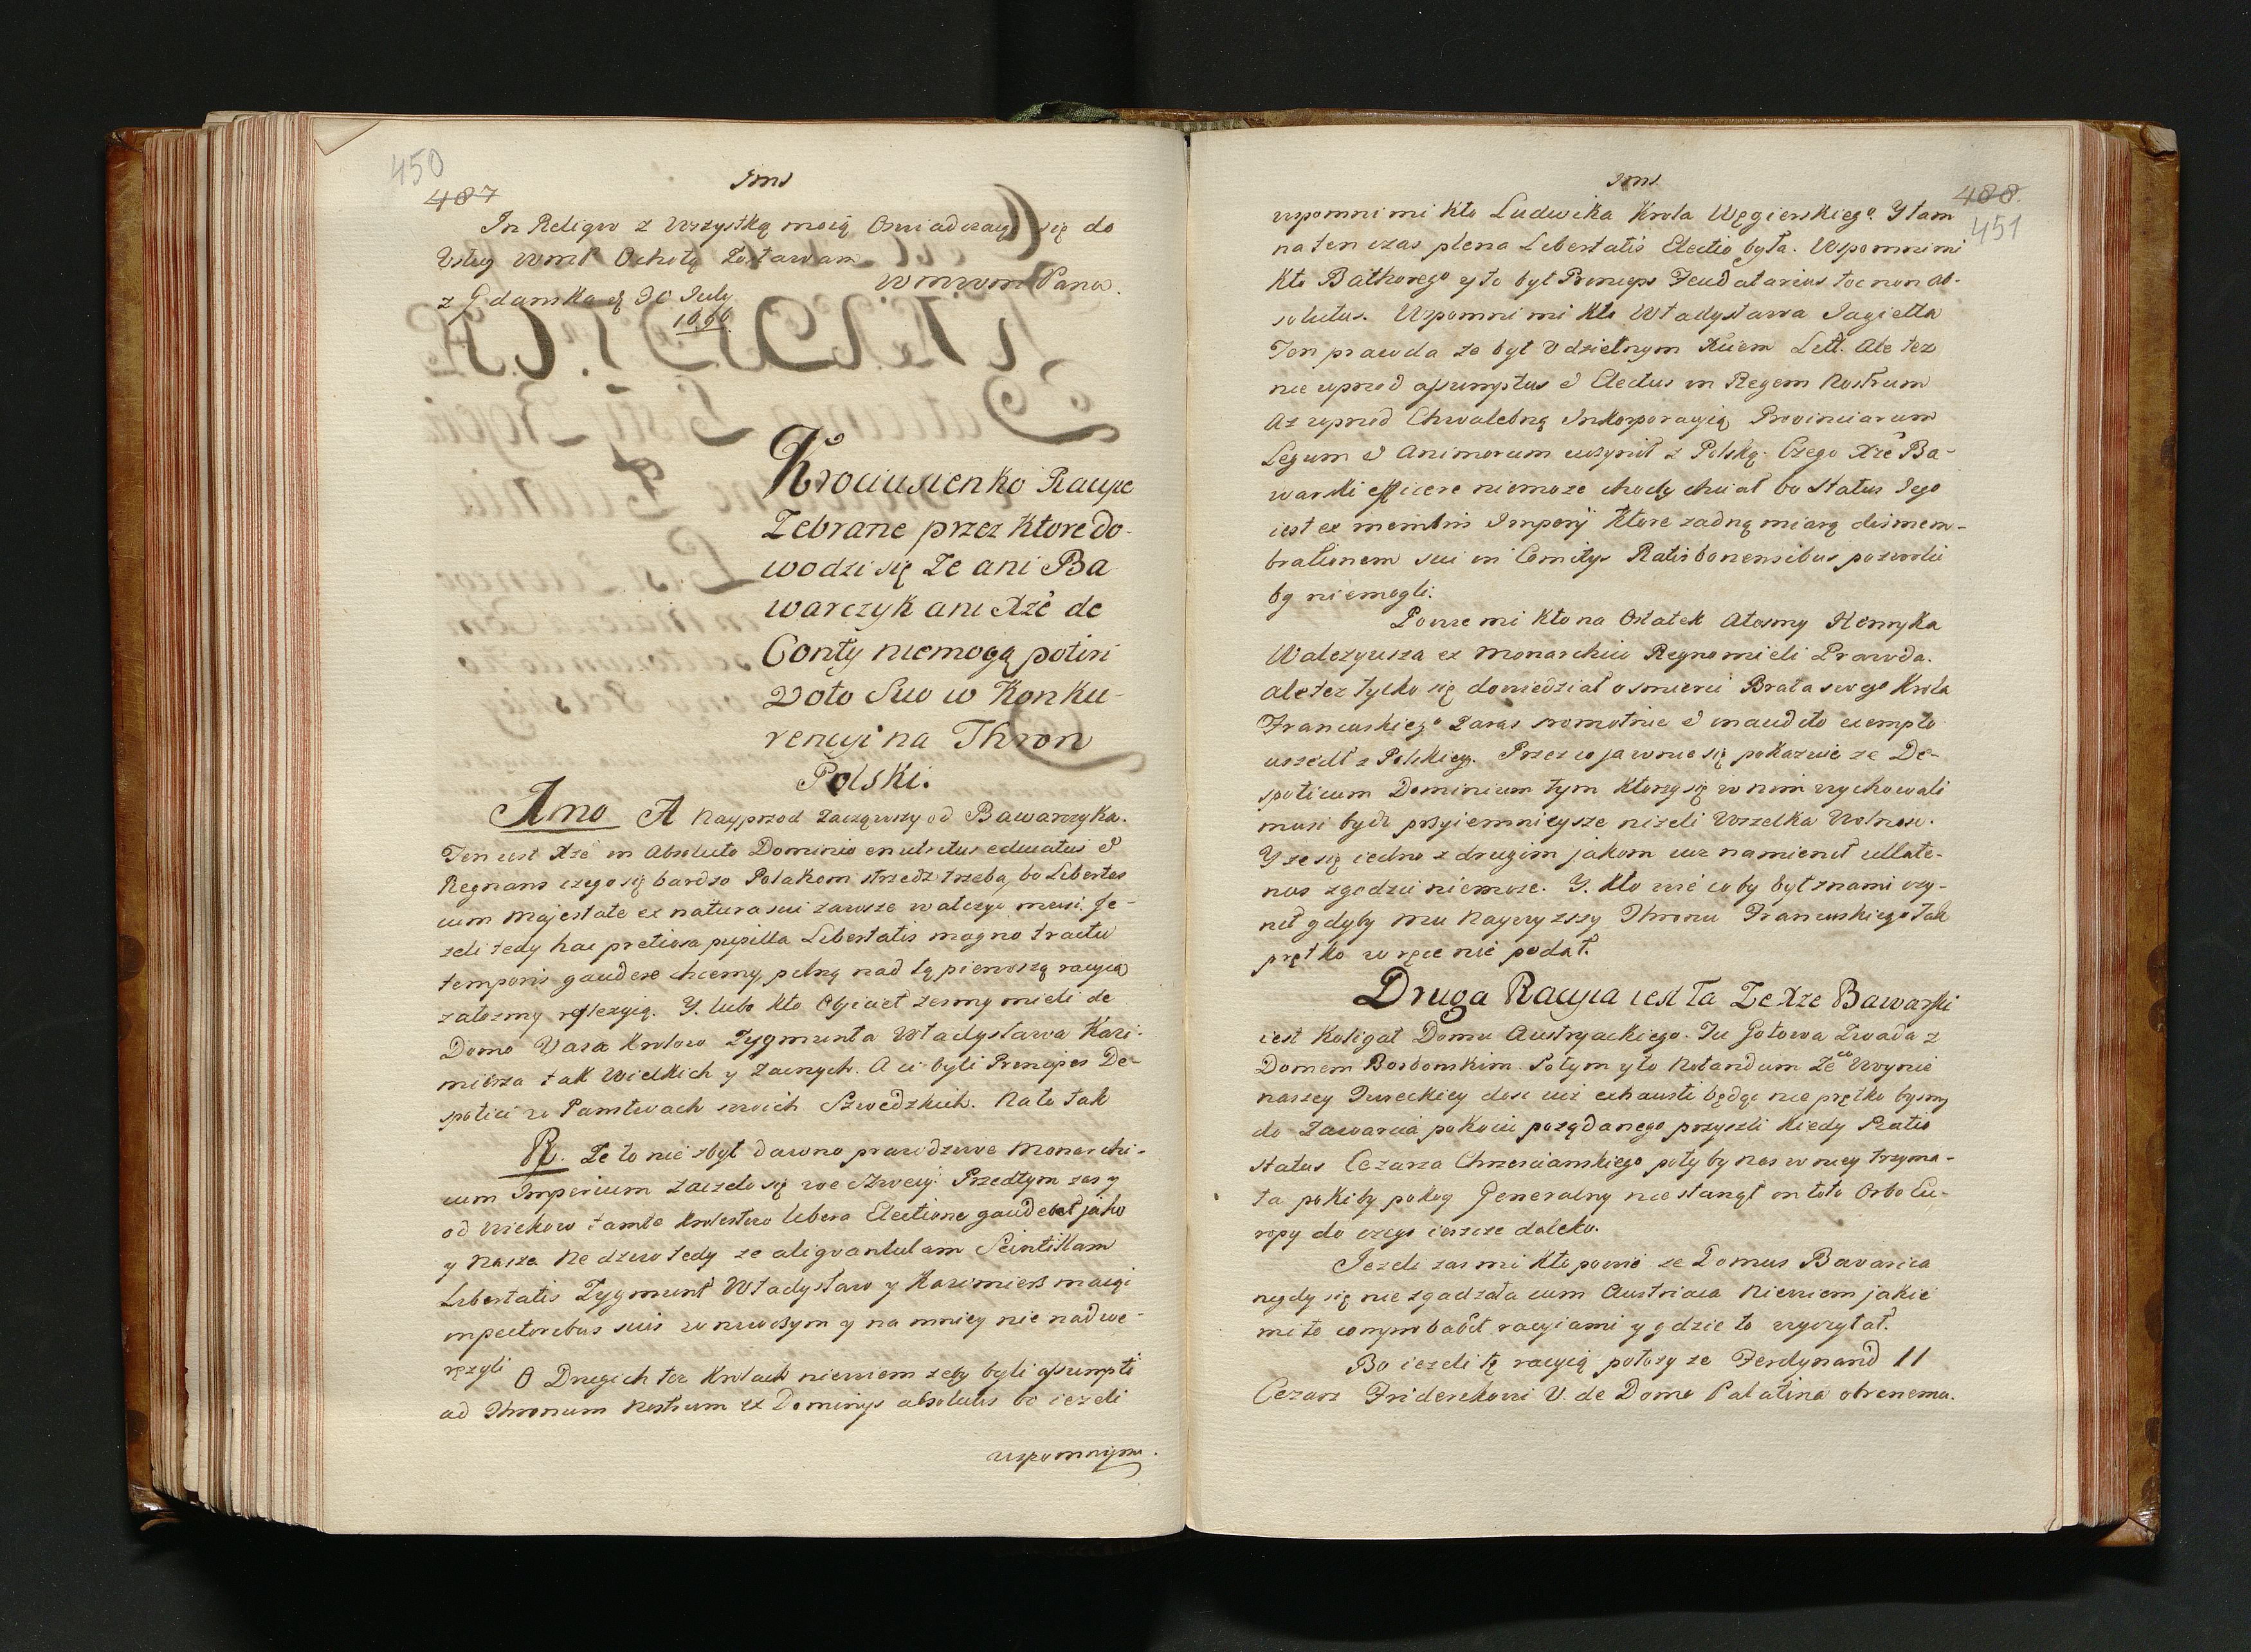 450
487
Jms
In Reliqvo z Wszystką moią Oswiadczając się do
Usług WmP Ochotą Zostawam
WmwmPana.
z Gdanska d 30 July
1696.
Krociusienko Racyie
Zebrane przez Ktore do-
wodzi się Ze ani Ba
warczyk ani Xżę de
Conty niemogą potiri
Voto Suo w Konku-
rencyi na Thron
Polski.
Imo A Nayprzod Zacząwszy od Bawarczyka.
Ten iest Xżę in Absoluto Dominio enutritus educatus &
Regnans czego się bardzo Polakom strzedz trzeba, bo Libertas
cum Majestate ex natura sui zawsze walczyc musi. Je-
zeli tedy hac pretiosa pupilla Libertatis magno tractu
temporis gaudere chcemy, pilną nad tą pierwszą racyią
załozmy reflexyią. Y. lubo kto Obiiciet zesmy mieli de
Domo Vasa Krolow Zygmunta Władysława Kazi-
mierza tak Wielkich y Zacnych. A ci byli Principes De-
spotici w Panstwach swoich Szwedzkich. Na to tak
R. Ze to nie zbyt dawno prawdziwe Monarchi-
cum Imperium zaczeło się we Szwecyi Przedtym zas y
od wiekow tamto Krolestwo libera Electione gaudebat jako
y Nasze Nie dziw tedy ze aliqvantulam Scintillam
Libertatis Zygmunt Władysław y Kazimierz maiąc
in pectoribus suis w niwczym y na mniey nie nadwe-
rężyli O Drugich tez Krolach niewiem zeby byli assumpti
ad Thronum Nostrum ex Dominys absolutis bo iezeli
wspomnimi.
Jms.
488.
451
wspomni mi Kto Ludwika Krola Węgierskiego. Y tam
na ten czas plena Libertatis Electio była. Wspomni mi
Kto Bathorego y to był Princeps Feudatarius toc non ab-
solutus. Wspomni mi Kto Władysława Jagiełła
Ten prawda ze był Udzielnym Xciem Litt. Ale tez
nie wprzod assumptus & Electus in Regem Nostrum
Az wprzod Chwalebną Inkorporacyią Provinciarum
Legum & Animorum uczynił z Polską. Czego Xżę Ba-
warski efficere niemoze chocby chciał bo Status Jego
iest ex membris Imperij Ktore zadną miarą dismem-
brationem sui in Comitys Ratisbonensibus pozwolic
by niemogli.
Powie mi Kto na Ostatek Alosmy Henryka
Walezyusza ex Monarchico Regno mieli Prawda.
Ale tez tylko się dowiedział o smierci Brata swego Krola
Francuskiego Zaraz sromotnie & inaudito exemplo
uszedł z Polskiey. Przez co jawnie się pokazuie ze De-
spoticum Dominium tym Ktorzy się w nim wychowali
musi bydz przyiemnieysze nizeli Wszelka Wolnosc.
Y ze się iedno z drugim jakom iuz namienił ullate-
nus zgodzic niemoze. Y. Kto wie co by był z nami czy-
nił gdyby mu Naywyzszy Thronu Francuskiego tak
prętko w ręce nie podał.
Druga Racyia iest Ta Ze Xze Bawarski
iest Koligat Domu Austryackiego. Tu Gotowa Zwada z
Domem Borbonskim. Potym y to Notandum Ze co Woynie
naszey Tureckiey dosc iuz exhausti będąc nie prętko bysmy
do Zawarcia pokoiu pożądanego przyszli Kiedy Ratio
status Cezarza Chrzescianskiego poty by nas w niey trzyma-
ła pokiby pokoy Generalny nie stanął in toto Orbe Eu-
ropy do czego ieszcze daleko.
Jezeli zas mi Kto powie ze Domus Bavarica
nigdy się nie zgadzała cum Austriaca Niewiem jakie
mi to comprobabit racyiami y gdzie to wyczytał.
Bo iezeli tę racyią połozy ze Ferdynand II
Cezarz Friderikowi V. de Domo Palatina obranemu.